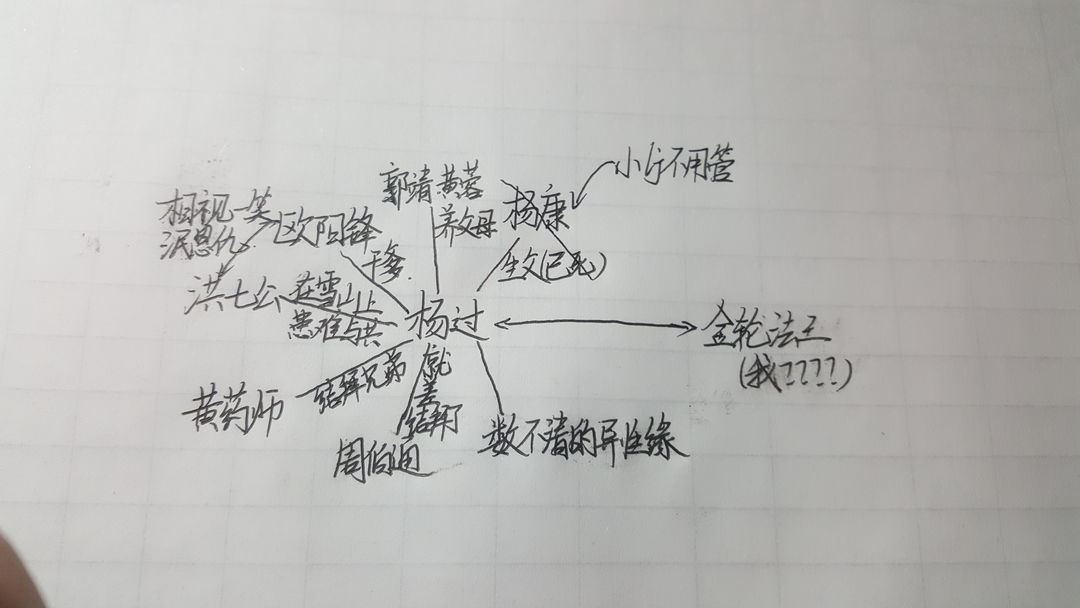 郭靖黄蓉
养父母
杨康
生父(已死)
小厅不用管
相视一笑
泯恩仇
欧阳锋
干爹
洪七公
在雪山上
患难与共
杨过
金轮法王
(我????)
黄药师
结拜兄弟
就
差
结拜了
周伯通
数不清的异性缘